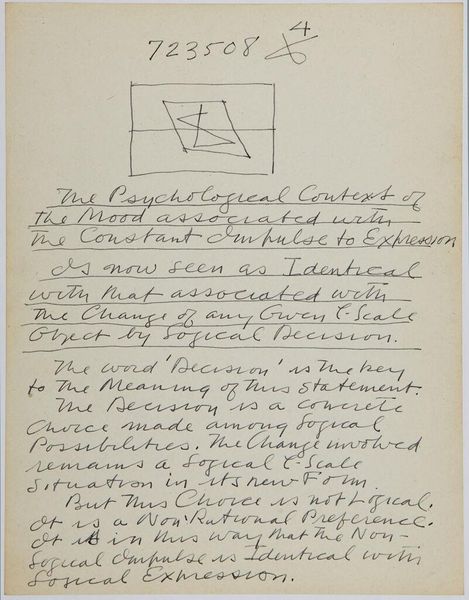 723508 4
The Psychological Context of
the Mood associated with
the Constant Impulse to Expression
Is now seen as Identical
with that associated with
the Change of any Given L-Scale
Object by Logical Decision.
The word 'Decision' is the key
to the Meaning of this statement.
The Decision is a concrete
choice made among Logical
Possibilities. The Change involved
remains a Logical L-Scale
Situation in its new Form.
But This Choice is not Logical.
It is a Non Rational Preference.
It is in this way that the Non-
Logical Impulse is Identical with
Logical Expression.